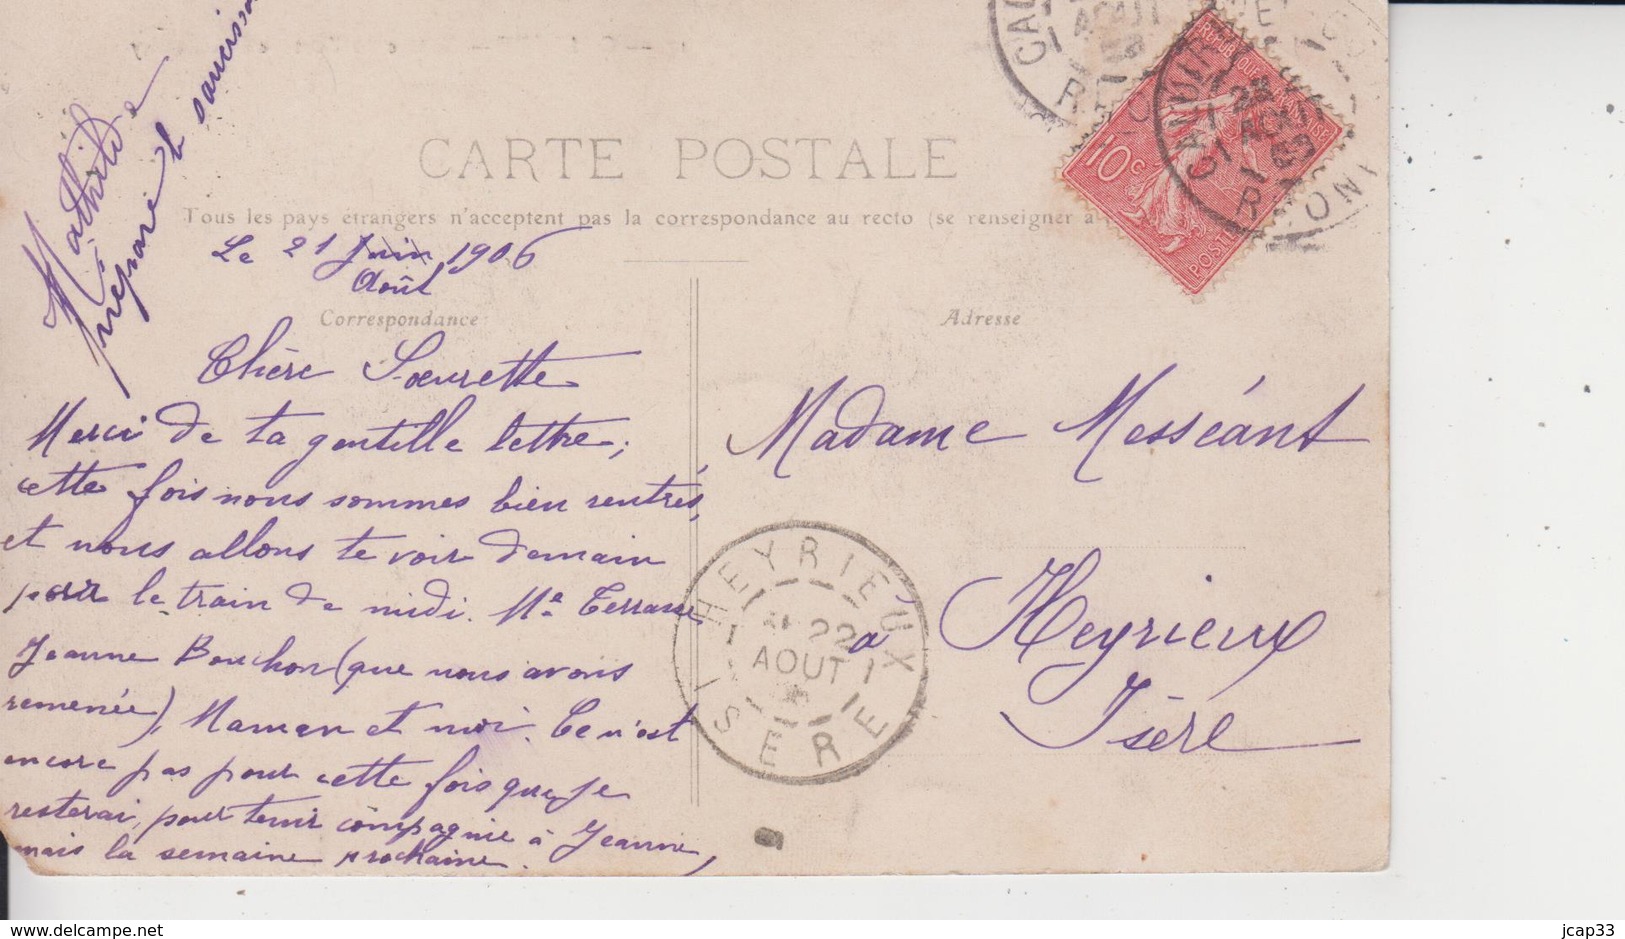 Mathilde
prépare l
CARTE POSTALE
Tous les pays étrangers n'acceptent pas la correspondance au recto (se renseigner à
Le 21 Juin 1906
Août
Correspondance
Adresse
REPUBLIQUE FRANÇAISE
10c
POSTES
Chère Soeurette
Merci de ta gentille lettre;
cette fois nous sommes bien rentrés,
et nous allons te voir demain
pour le train de midi. Me Terrasse,
Jeanne Bouchon (que nous avons
remenée), Maman et moi. Ce n'est
encore pas pour cette fois que je
resterai, pour tenir compagnie à Jeanne,
mais la semaine prochaine.
Madame Messéant
à Heyrieux
Isère
HEYRIEUX
22
AOUT
ISERE
delcampe.net
jcap33